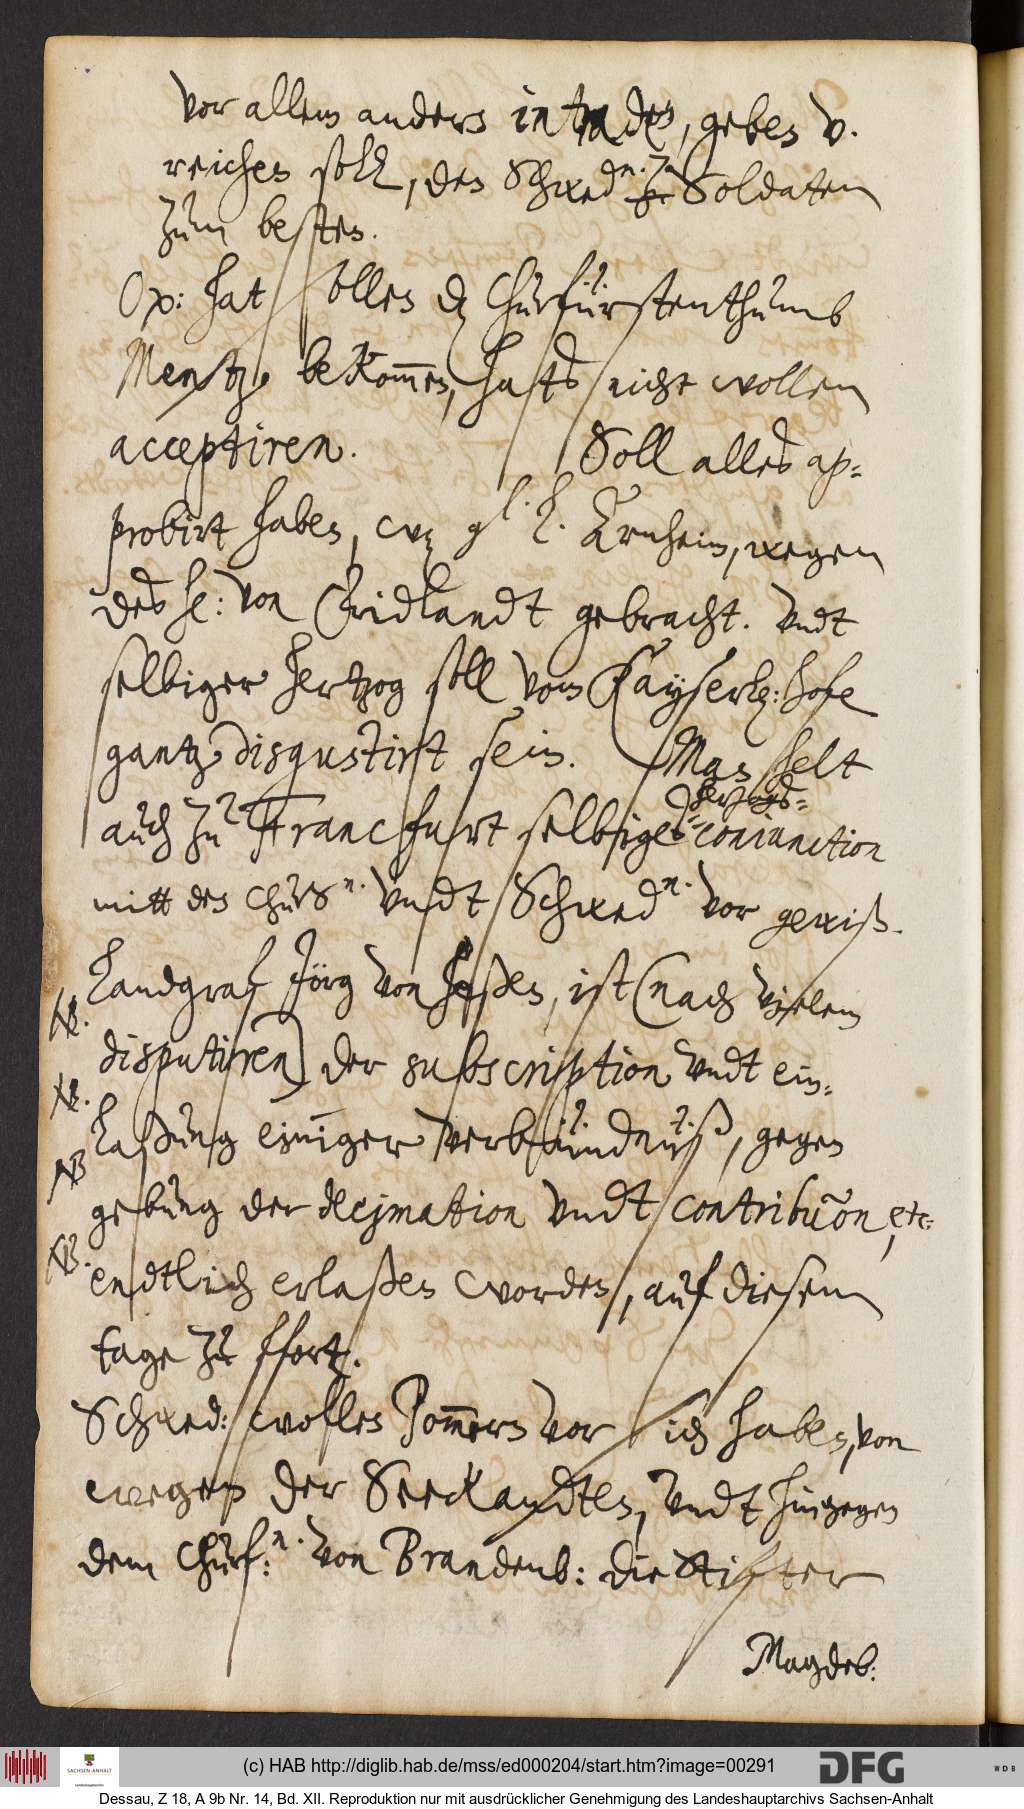 vor allem anders intrades, geben v.
reichen soll, den Schwed.n. Zu Soldaten
zum besten.
Ox: hat sollen dz Churfürstenthumb
Mentz, bekom̅en, hats nicht wollen
acceptiren. Soll alles ap-
probirt haben, wz gl. h. Arnheim, wegen
des h: von Fridlandt gebracht. Vndt
selbiger hertzog soll vom Kayserl: hofe
gantz disgustirt sein. Man helt
auch zu Franckfurt selbiges hertzogs-
coniunction
mitt den Churs.n. Vndt Schwed.n. vor gewiß.
Landgraf Jörg von Heßen, ist (nach vielem
NB.
disputiren) der subscription vndt ein-
NB.
Laßung einiger Verbündnüß, gegen
NB
gebung der decimation vndt contribuõn, etc:
NB.
endtlich erlaßen worden, auf diesem
tage zu ffort.
Schwed: wollen Pom̅ern vor sich haben, von
wegen der Seekandten, vndt hingegen
dem Churf:n. von Brandenb: die Stifter
Magdeb:
(c) HAB http://diglib.hab.de/mss/ed000204/start.htm?image=00291
SACHSEN-ANHALT
DFG
WDB
Dessau, Z 18, A 9b Nr. 14, Bd. XII. Reproduktion nur mit ausdrücklicher Genehmigung des Landeshauptarchivs Sachsen-Anhalt